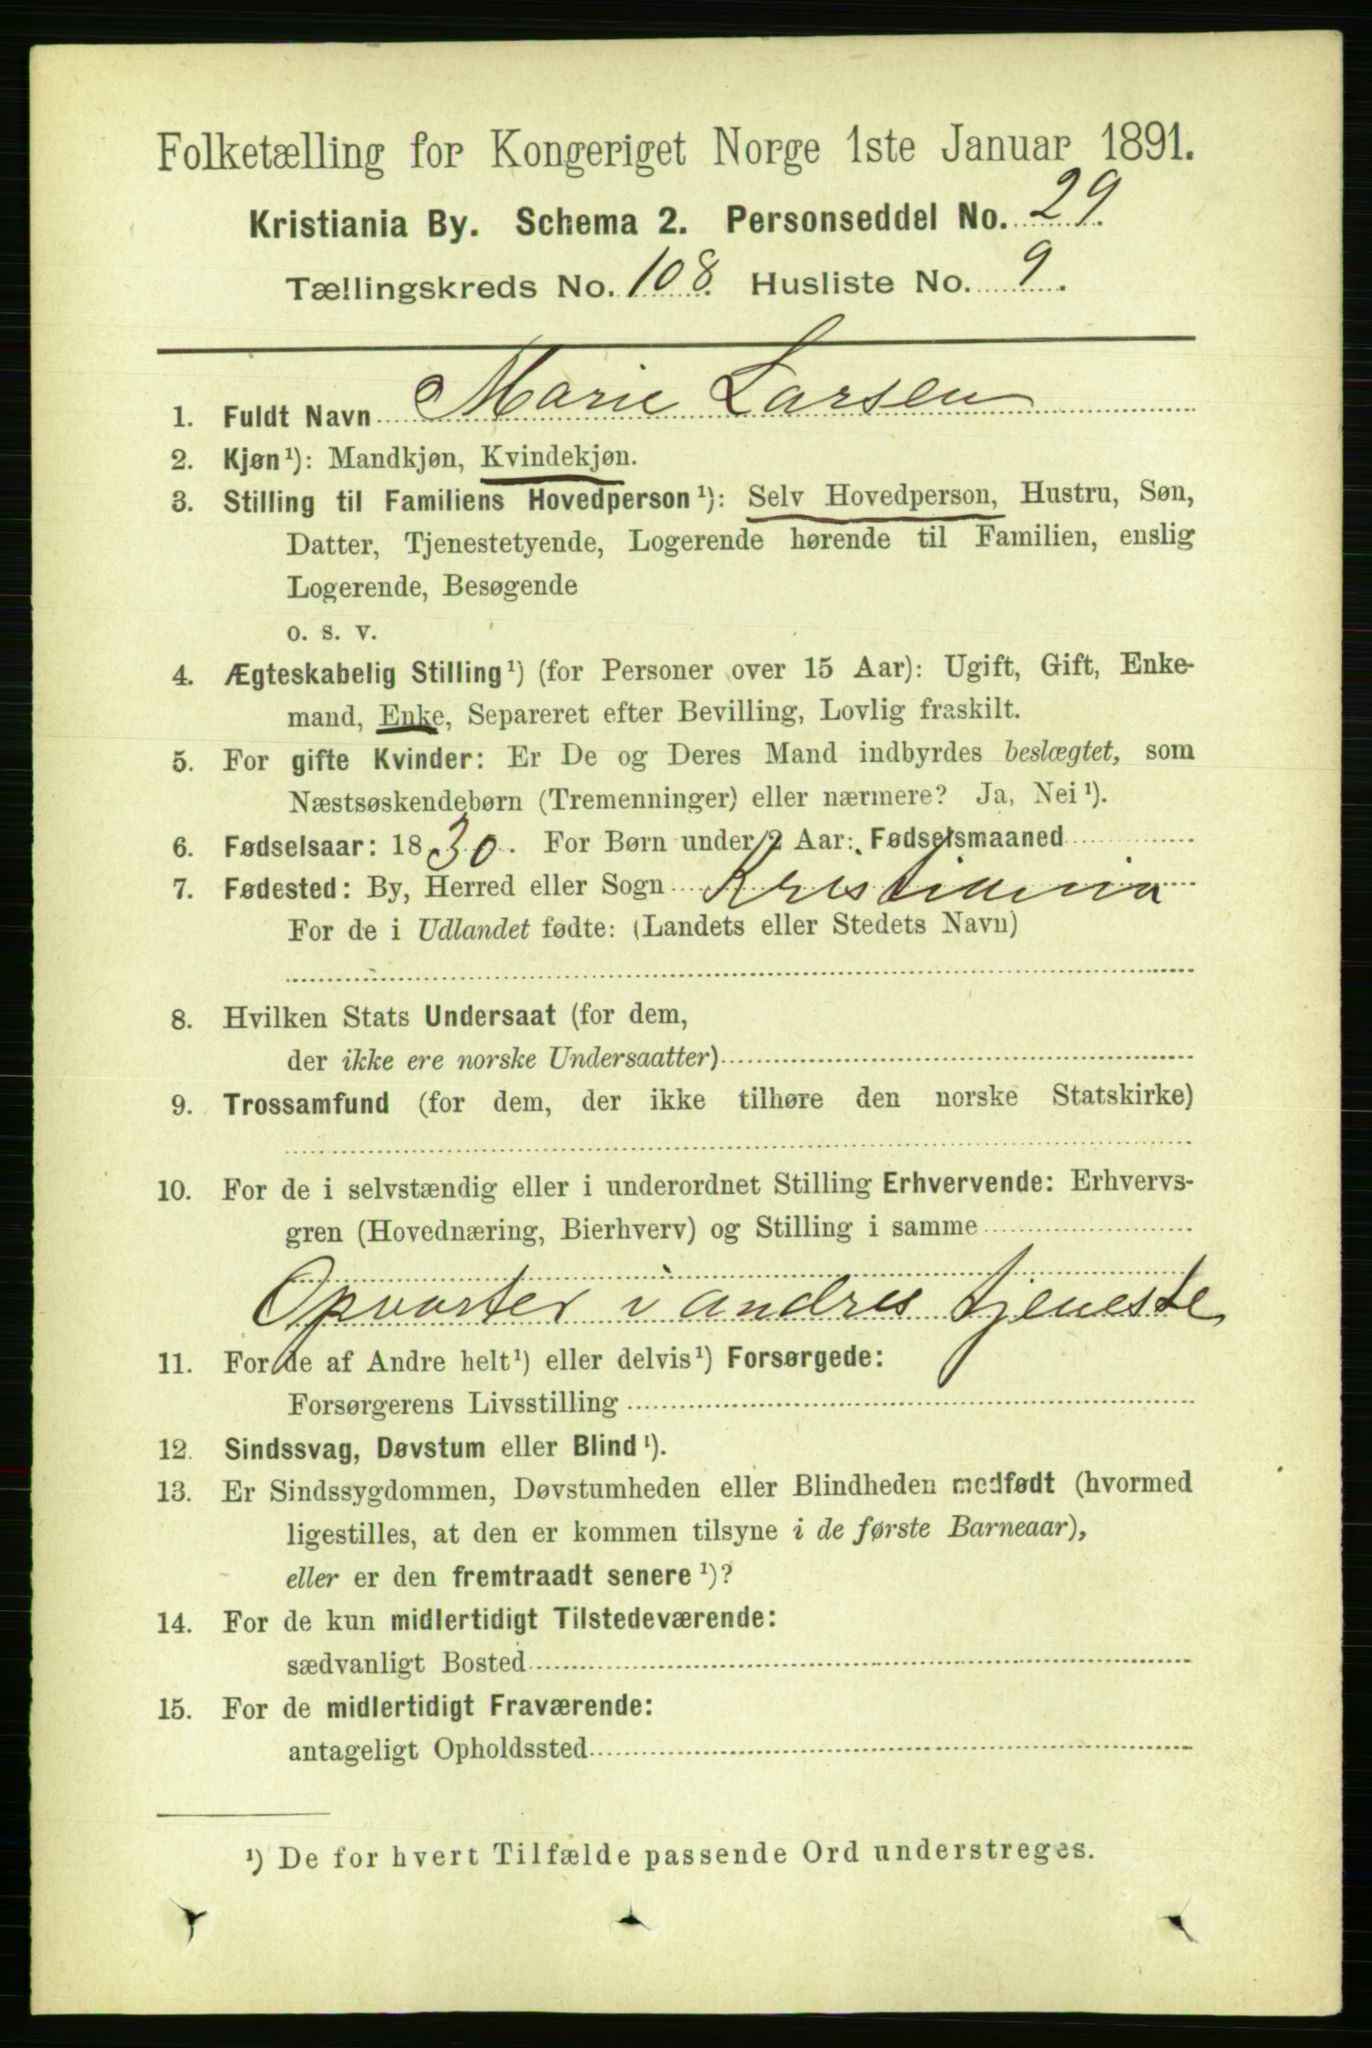 Folketælling for Kongeriget Norge 1ste Januar 1891.
Kristiania By. Schema 2. Personseddel No. 29.
Tællingskreds No. 108. Husliste No. 9.
1. Fuldt Navn Marie Larsen
2. Kjøn¹): Mandkjøn, Kvindekjøn.
3. Stilling til Familiens Hovedperson¹): Selv Hovedperson, Hustru, Søn,
Datter, Tjenestetyende, Logerende hørende til Familien, enslig
Logerende, Besøgende
o. s. v.
4. Ægteskabelig Stilling¹) (for Personer over 15 Aar): Ugift, Gift, Enke-
mand, Enke, Separeret efter Bevilling, Lovlig fraskilt.
5. For gifte Kvinder: Er De og Deres Mand indbyrdes beslægtet, som
Næstsøskendebørn (Tremenninger) eller nærmere? Ja, Nei¹).
6. Fødselsaar: 1830. For Børn under 2 Aar: Fødselsmaaned
7. Fødested: By, Herred eller Sogn Kristiania
For de i Udlandet fødte: (Landets eller Stedets Navn)
8. Hvilken Stats Undersaat (for dem,
der ikke ere norske Undersaatter)
9. Trossamfund (for dem, der ikke tilhøre den norske Statskirke)
10. For de i selvstændig eller i underordnet Stilling Erhvervende: Erhvervs-
gren (Hovednæring, Bierhverv) og Stilling i samme
Opvarter i andres tjeneste
11. For de af Andre helt¹) eller delvis¹) Forsørgede:
Forsørgerens Livsstilling
12. Sindssvag, Døvstum eller Blind¹).
13. Er Sindssygdommen, Døvstumheden eller Blindheden medfødt (hvormed
ligestilles, at den er kommen tilsyne i de første Barneaar),
eller er den fremtraadt senere¹)?
14. For de kun midlertidigt Tilstedeværende:
sædvanligt Bosted
15. For de midlertidigt Fraværende:
antageligt Opholdssted
¹) De for hvert Tilfælde passende Ord understreges.